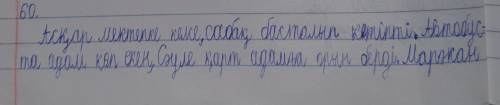 60.
Асқар мектепке келсе, сабақ басталып кетіпті. Автобус-
та адам көп екен, Сәуле қарт адамға орын берді. Маржан